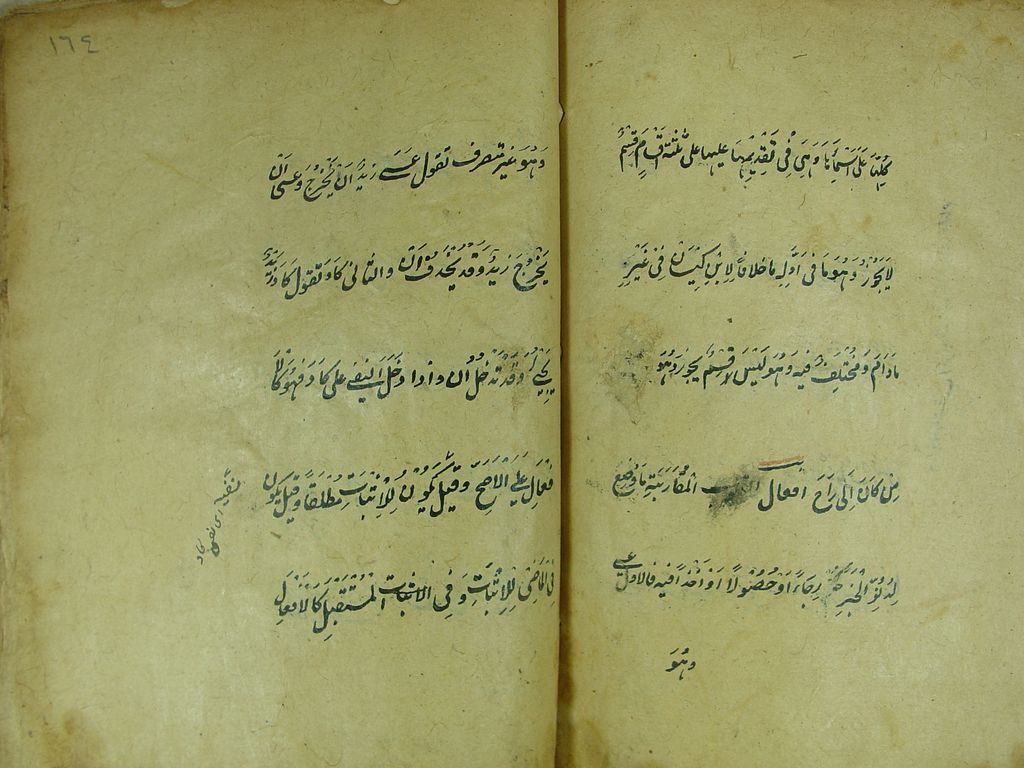 كلها على اسمائها وهي في تقديمها عليها على ثلثة اقسام قسم
لا يجوز وهو ما في اوله ما خلافا لابن كيسان في غير
مادام ومختلف فيه وهو ليس وقسم يجوز وهو
من كان الى راح افعال المقاربة ما وضع
لدنو الخبر رجاء او حصولا او اخذا فيه فالاول عسى
وهو
١٦٤
وهو غير متصرف تقول عسى زيد ان يخرج وعسى ان
يخرج زيد وقد يحذف ان والثاني كاد وتقول كاد زيد
يجيء وقد تدخل ان واذا دخل النفي على كاد فهو كالا
فعال على الاصح وقيل يكون للاثبات مطلقا وقيل يكون
في الماضي للاثبات وفي المستقبل كالافعال
نفيه اى نفى كاد